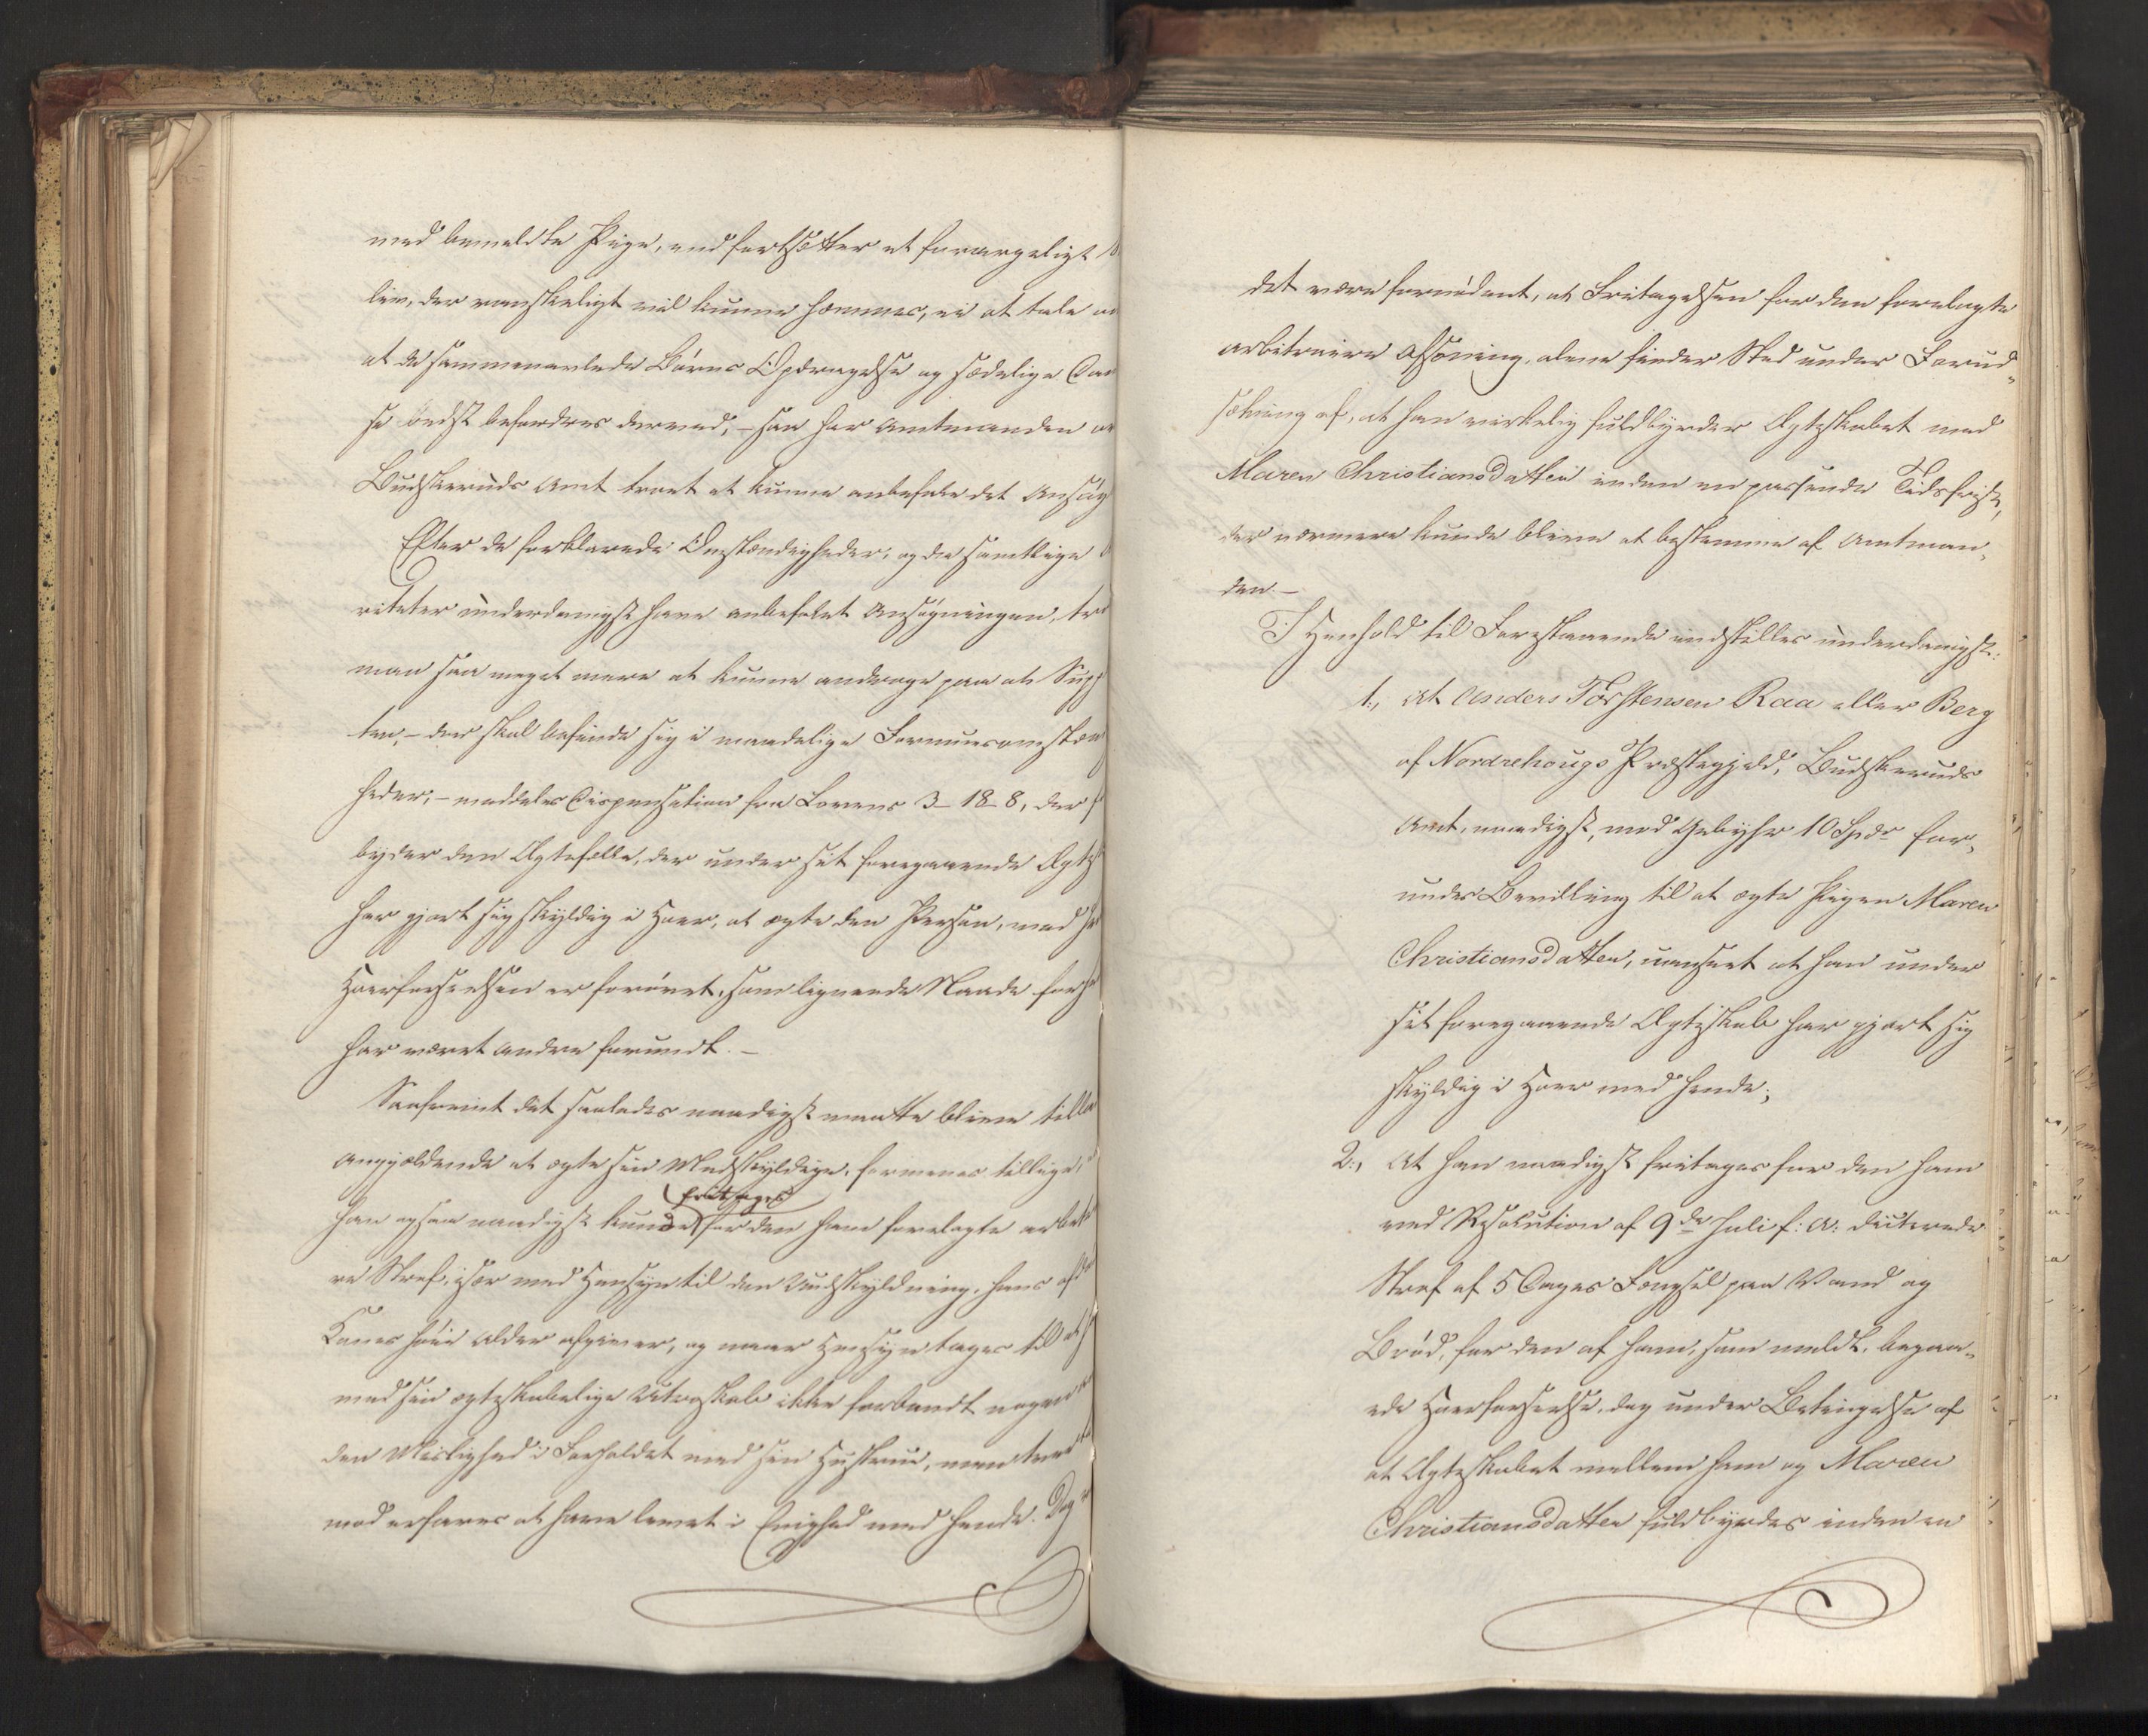 med bemeldte Pige, end fortsætter et forargeligt
liv, der vanskeligt vil kunne hæmmes, ei at tale
at de sammenavlede Børns Opdragelse og sædelige Dan
se bedst befordres derved, – saa har Amtmanden
Budskeruds Amt troet at kunne anbefale det Ansøg
Efter de forklarede Omstændigheder, og da samtlige
riteter underdanigst have anbefalet Ansøgningen, tro
man saa meget mere at kunne andrage paa at Supp
ten, – der skal befinde sig i maadelige Formuesomstæn
heder, – meddeles Dispensation fra Lovens 3–18–8, der
byder den Ægtefælle, der under sit foregaaende Ægtesk
har gjort sig skyldig i Hoer, at ægte den Person, med
Hoerforseelsen er forøvet, som lignende Naade forhe
har været andre forundt. –
Saafremt det saaledes naadigst maatte blive tilla
angjældende at ægte sin Medskyldige, formenes tillige,
fritages
han ogsaa naadigst kunde for den ham forelagte arbitræ
re Straf, især med Hensyn til den Undskyldning, hans afd
Kones høie Alder afgiver, og naar Hensyn tages til at
med sin ægteskabelige Utroskab ikke forbandt nogen
den Mislighed i Forholdet med sin Hustrue, men tver
mod erfares at have levet i Enighed med hende. Dog
det være fornødent, at Fritagelsen for den forelagte
arbitraire Afsoning, alene finder Sted under Forud„
sætning af, at han virkelig fuldbyrder Ægteskabet med
Maren Christiansdatter inden en passende Tidsfrist,
der nærmere kunde blive at bestemme af Amtman„
den. –
I Henhold til Forestaaende indstilles underdanigst:
1., At Anders Torstensen Raa eller Berg
af Nordrehougs Præstegjæld, Budskeruds
Amt, naadigst, mod Gebyhr 10 Spdr for„
undes Bevilling til at ægte Pigen Maren
Christiansdatter, uanseet at han under
sit foregaaende Ægteskab har gjort sig
skyldig i Hoer med hende;
2., At han naadigst fritages for den ham
ved Resolution af 9de Juli f: A: dicterede
Straf af 5 Dages Fængsel paa Vand og
Brød, for den af ham, som meldt, begaa„
ede Hoerforseelse, dog under Betingelse af
at Ægteskabet mellem ham og Maren
Christiansdatter fuldbyrdes inden en